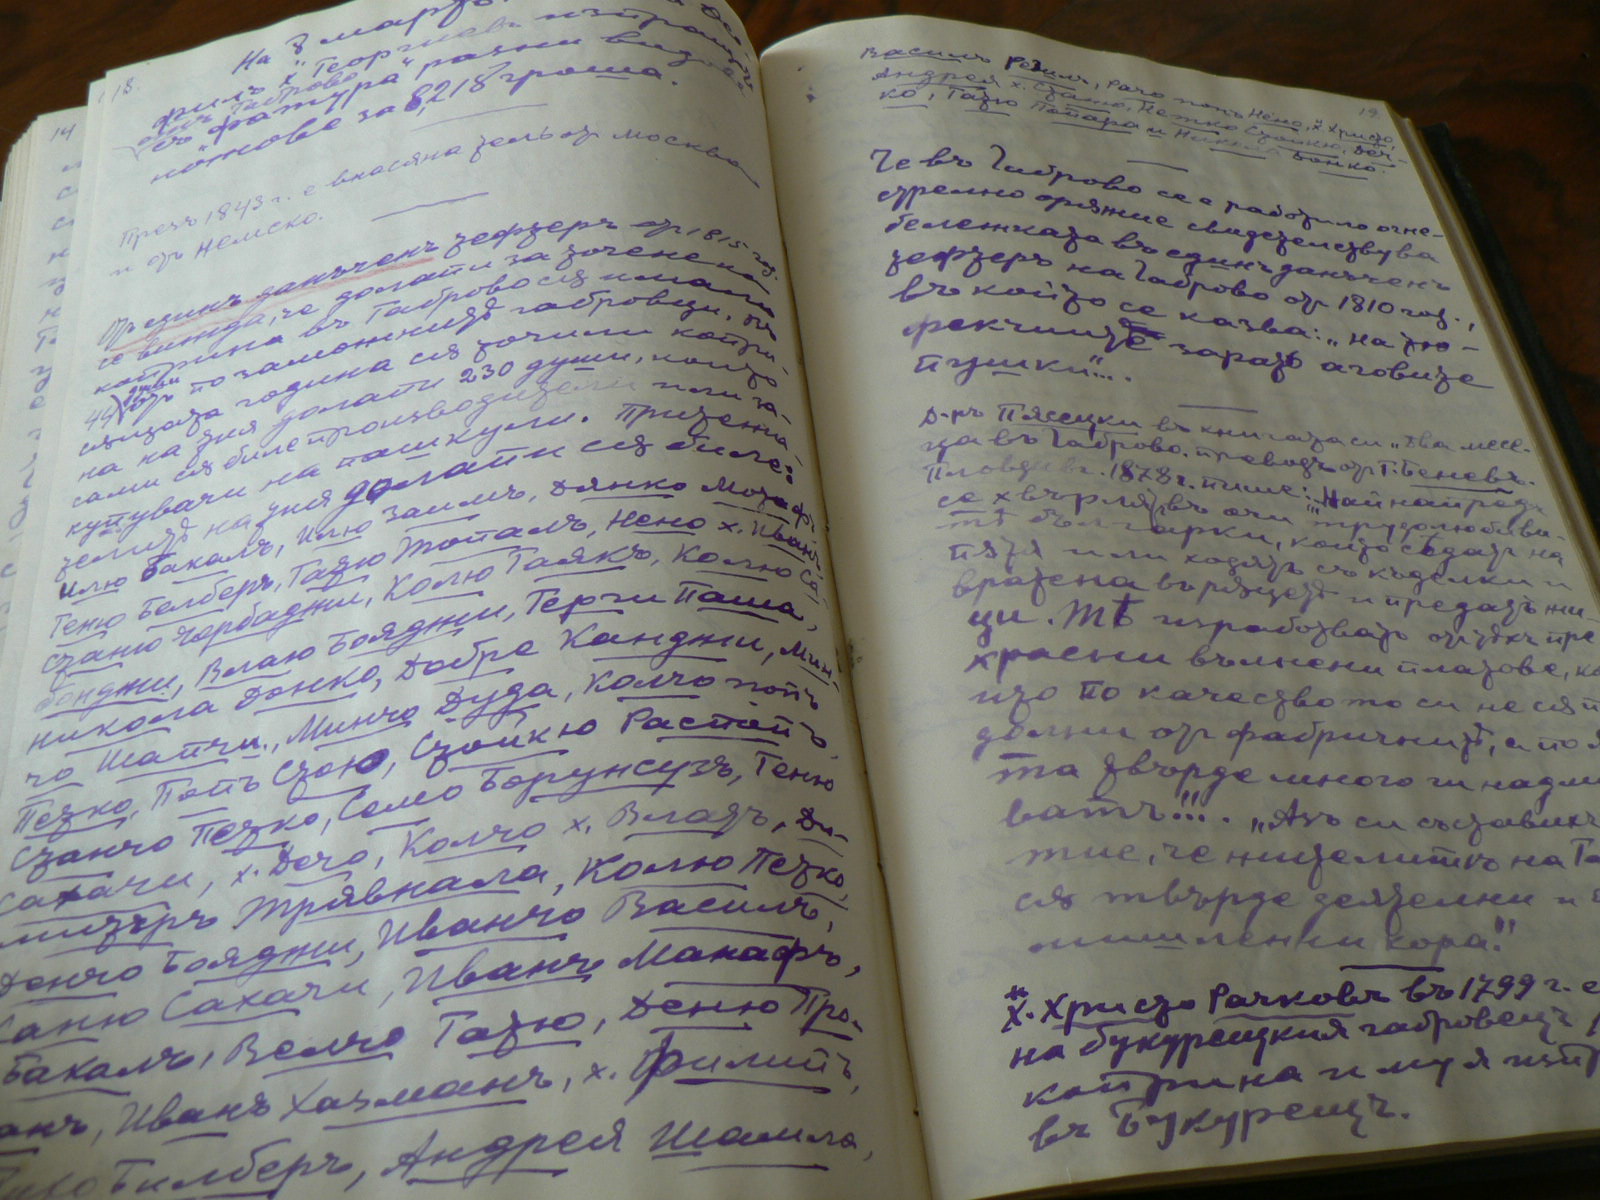 18.
На 8 мартъ
х. Георгиевъ изпраща
филъ
отъ Габрово
съ "фактура" разни видове
ножове за 8,218 гроша.
Презъ 1843 г. е внасяна тель отъ Москва
и отъ Немско.
Отъ единъ данъченъ тефтеръ отъ 1815 год.
се вижда, че долапи за точене на
коприна въ Габрово сѫ имали
44 души по заможнитѣ габровци.
сѫщата година сѫ точили копри-
на на тия долапи 230 души, които
сами сѫ биле производители или за-
купувачи на пашкули. Притежа-
телитѣ на тия долапи сѫ биле:
Илю Бакалъ, Илю Заимъ, Дянко Мозаф
Геню Белберъ, Гатю Топалъ, Нено х. Иванъ,
Станю Чорбаджи, Колю Таякъ, Колю Са-
банджи, Влаю Бояджи, Герги Паша,
Никола Донко, Добре Канджи, Мин-
чо Шапчи, Минчо Дуда, Колчо попъ
Петко, Попъ Стою, Стойкю Растепъ,
Станчо Петко, Семо Борунсузъ, Геню
Сахачи, х. Дечо, Колчо х. Владъ, Ди-
митъръ Трявнала, Колю Петко,
Денчо Бояджи, Иванчо Василъ,
Станю Сахачи, Иванчо Манафъ,
Бакалъ, Велчо Гатю, Деню Про-
анъ, Иванъ Хазманъ, х. Филипъ,
Билберъ, Андрея Шамла,
14
19
Василъ Резилъ, Рачо попъ Нено, х. Христо,
Андрея х. Станю, Нетко Стойкю, Деч-
ко, Гатю Попара и Никола Бонко.
Че въ Габрово се е работило огне-
стрелно орѫжие свидетелствува
бележката въ единъ данъченъ
тефтеръ на Габрово отъ 1810 год.,
въ който се казва: "на тю-
фекчиитѣ заратъ аговите
пушки"...
Д-ръ Пясецки въ книгата си "Два месе-
ца въ Габрово. преводъ отъ Г. Беневъ.
Пловдивъ. 1878 г. пише: "Най напредъ
се хвърлятъ въ очи трудолюбиви-
тѣ българки, които седятъ на
пътя или ходятъ съ къделки и
вратена въ рѫцетѣ и предатъ ни-
ци. Тѣ изработватъ отъ тѣхъ пре
красни вълнени платове, ко
ито по качеството си не сѫ п
долни отъ фабричнитѣ, а по я
та твърде много ги надми
ватъ!!!. "Азъ си съставихъ
тие, че жителитѣ на Га
сѫ твърде деятелни и
мишленни хора."
Х. Христо Рачковъ въ 1799 г. е
на букурещкия габровецъ
коприна и му я изпр
въ Букурещъ.